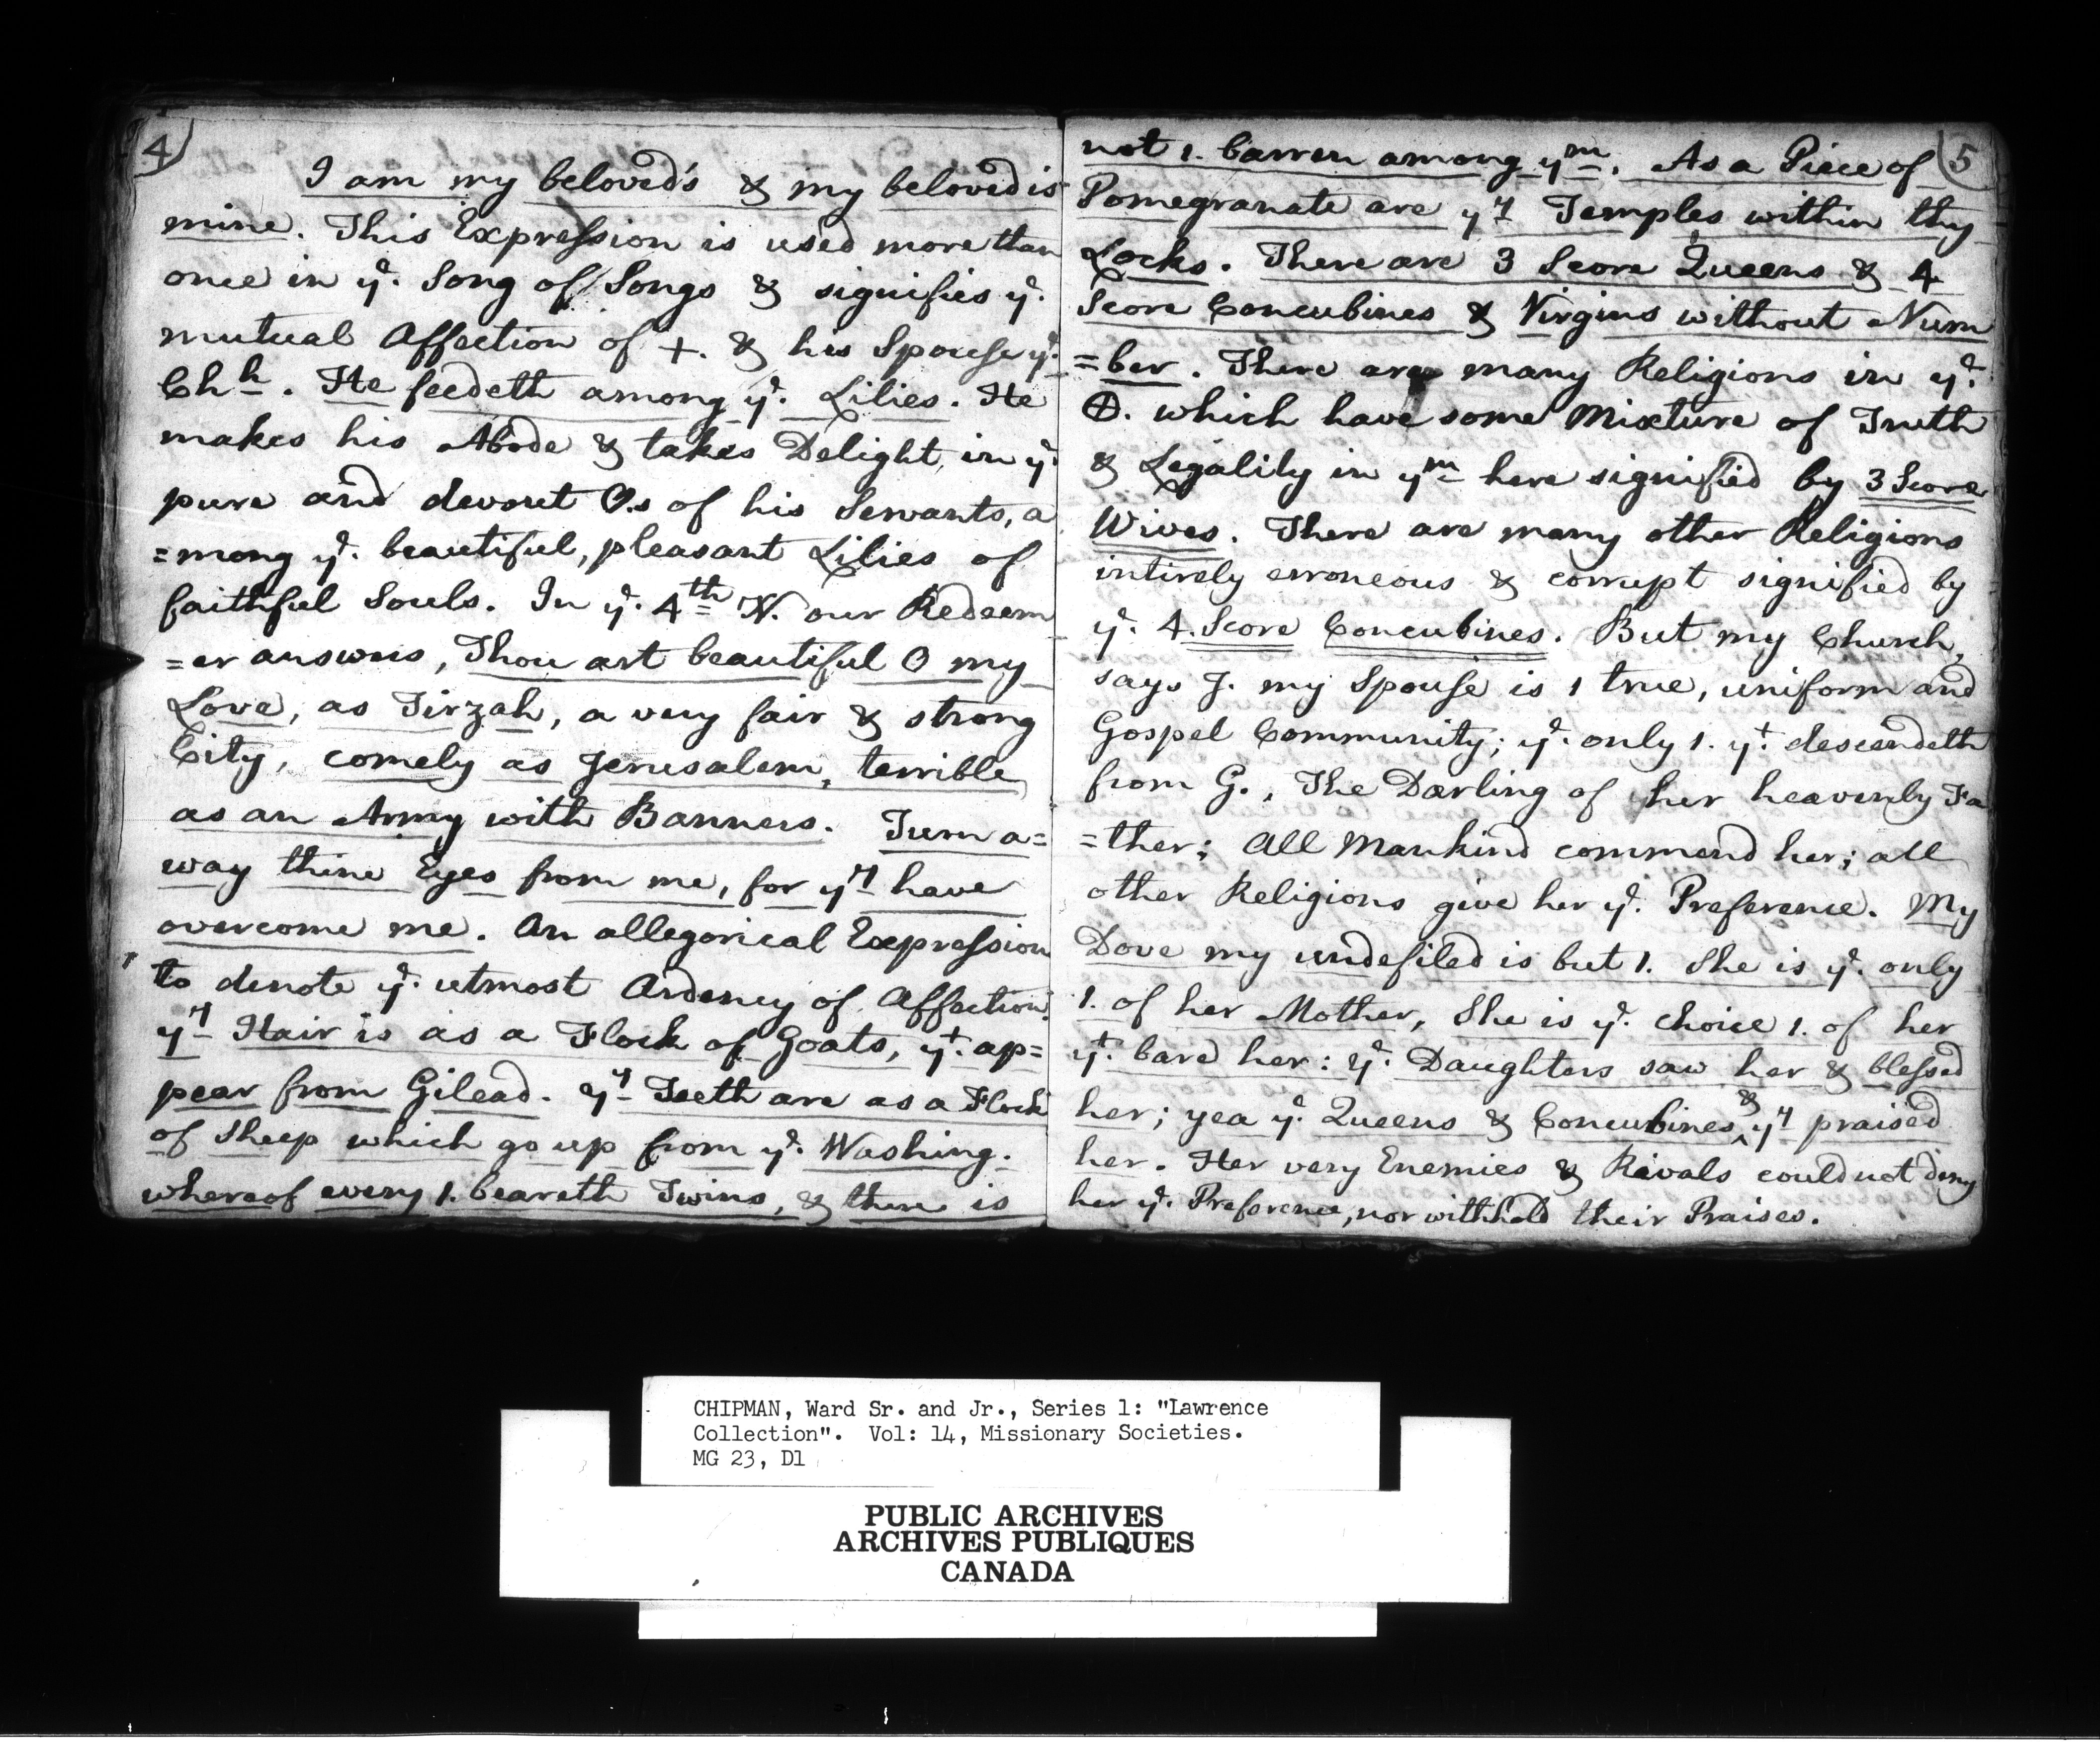 4
I am my beloved's & my beloved is
mine. This Expression is used more than
once in ye. Song of Songs & signifies ye.
mutual Affection of +. & his Spouse ye.
Chh. He feedeth among ye. Lilies. He
makes his Abode & takes Delight, in ye.
pure and devout O.s of his Servants, a
=mong ye. beautiful, pleasant Lilies of
faithful Souls. In ye. 4th V. our Redeem
=er answers, Thou art beautiful O my
Love, as Tirzah, a very fair & strong
City, comely as Jerusalem, terrible
as an Army with Banners. Turn a=
way thine Eyes from me, for yy have
overcome me. An allegorical Expression
to denote ye. utmost Ardency of Affection.
yy Hair is as a Flock of Goats, yt. ap=
pear from Gilead. yy Teeth are as a Flock
of Sheep which go up from ye. Washing.
whereof every 1. beareth Twins, & there is
5
not 1. barren among ym. As a Piece of
Pomegranate are yy Temples within thy
Locks. There are 3 Score Queens & 4
Score Concubines & Virgins without Num
=ber. There are many Religions in ye.
⊕. which have some Mixture of Truth
& Legality in ym here signified by 3 Score
Wives. There are many other Religions
intirely erroneous & corrupt signified by
ye. 4. Score Concubines. But my Church,
says J. my Spouse is 1 true, uniform and
Gospel Community; ye. only 1. yt. descendeth
from G., The Darling of her heavenly Fa
=ther; All Mankind commend her; all
other Religions give her ye. Preference. My
Dove my undefiled is but 1. She is ye. only
1. of her Mother, She is ye. choice 1. of her
yt. bare her: ye. Daughters saw her & blessed
her; yea ye. Queens & Concubines, & yy praised
her. Her very Enemies & Rivals could not deny
her ye. Preference, nor withhold their Praises.
CHIPMAN, Ward Sr. and Jr., Series 1: "Lawrence
Collection". Vol: 14, Missionary Societies.
MG 23, D1
PUBLIC ARCHIVES
ARCHIVES PUBLIQUES
CANADA